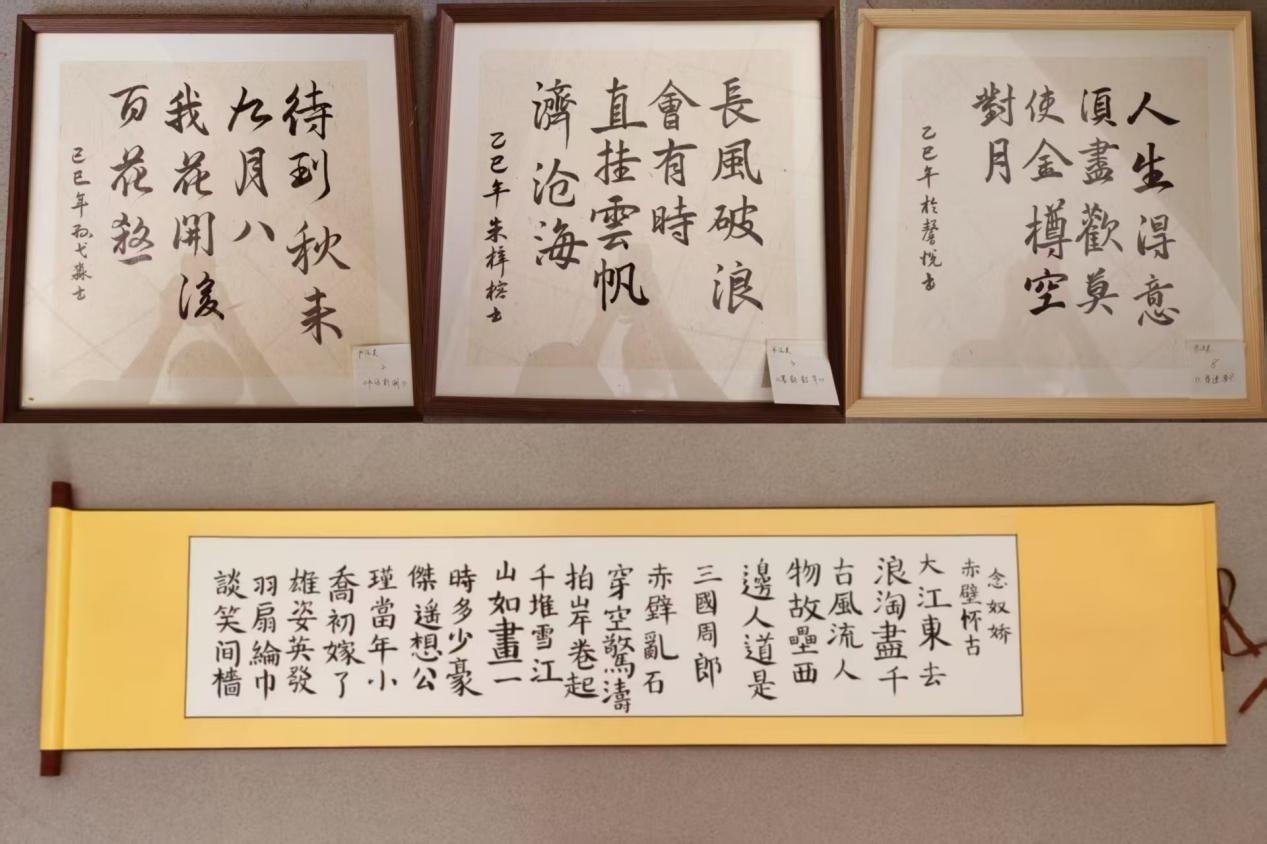 待到秋来
九月八
我花開後
百花殺
己巳年孙弋淼书
長風破浪
會有時
直挂雲帆
濟沧海
乙巳年朱梓榕书
人生得意
須盡歡莫
使金樽空
對月
乙巳年於馨悦书
8
念奴娇
赤壁怀古
大江東去
浪淘盡千
古風流人
物故壘西
邊人道是
三國周郎
赤壁亂石
穿空驚濤
拍岸卷起
千堆雪江
山如畫一
時多少豪
傑遥想公
瑾當年小
喬初嫁了
雄姿英發
羽扇綸巾
談笑间檣